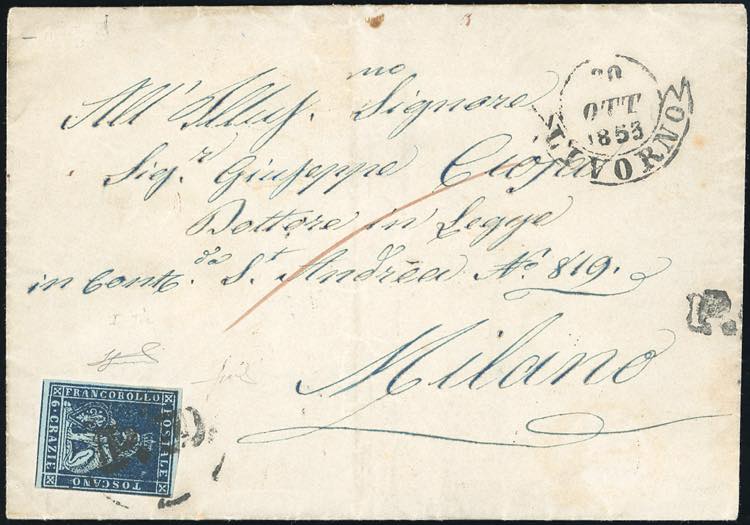 All' Illus.mo Signore
Sig.r Giuseppe
Dottore in Legge
in Cont.da S.t Andrea No. 819.
Milano
20
OTT
1853
LIVORNO
FRANCOBOLLO
POSTALE
TOSCANO
6·CRAZIE